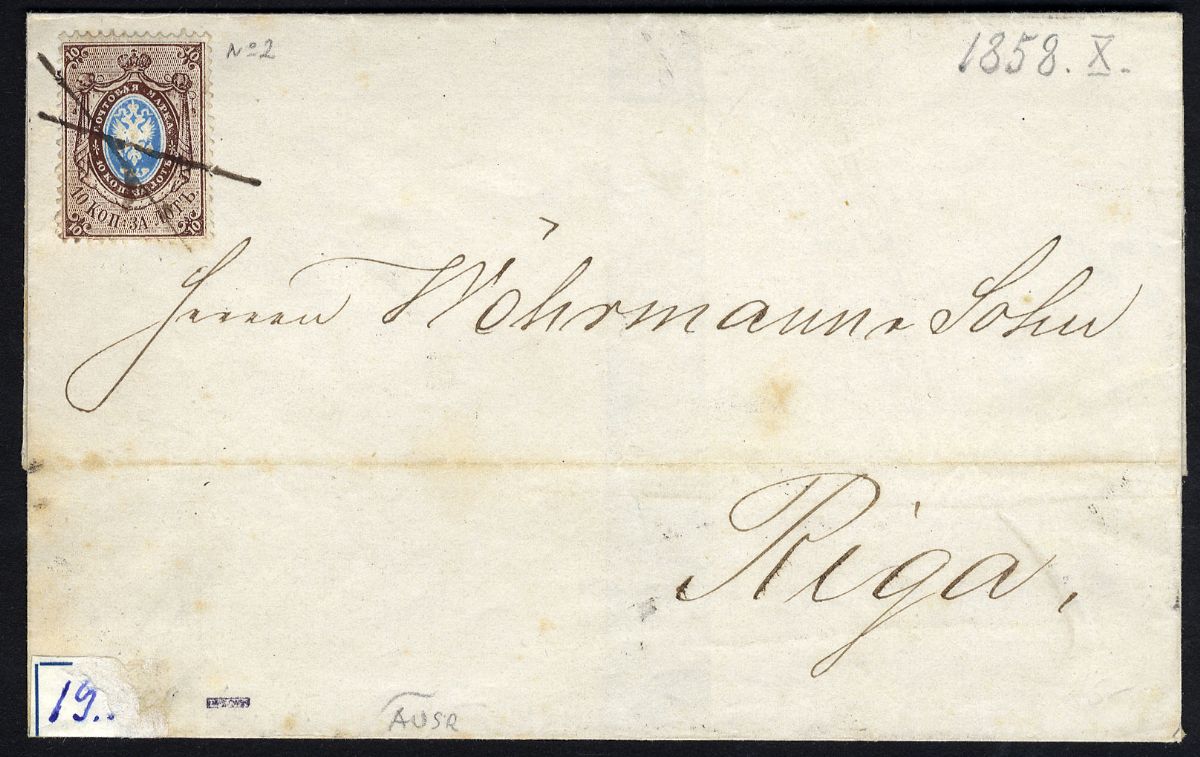 10 10
№2
1858. X.
ПОЧТОВАЯ МАРКА
10 КОП. ЗА ЛОТЪ
10 КОП. ЗА ЛОТЪ.
10 10
Herren Wöhrmann & Sohn
Riga,
19..
AUSR